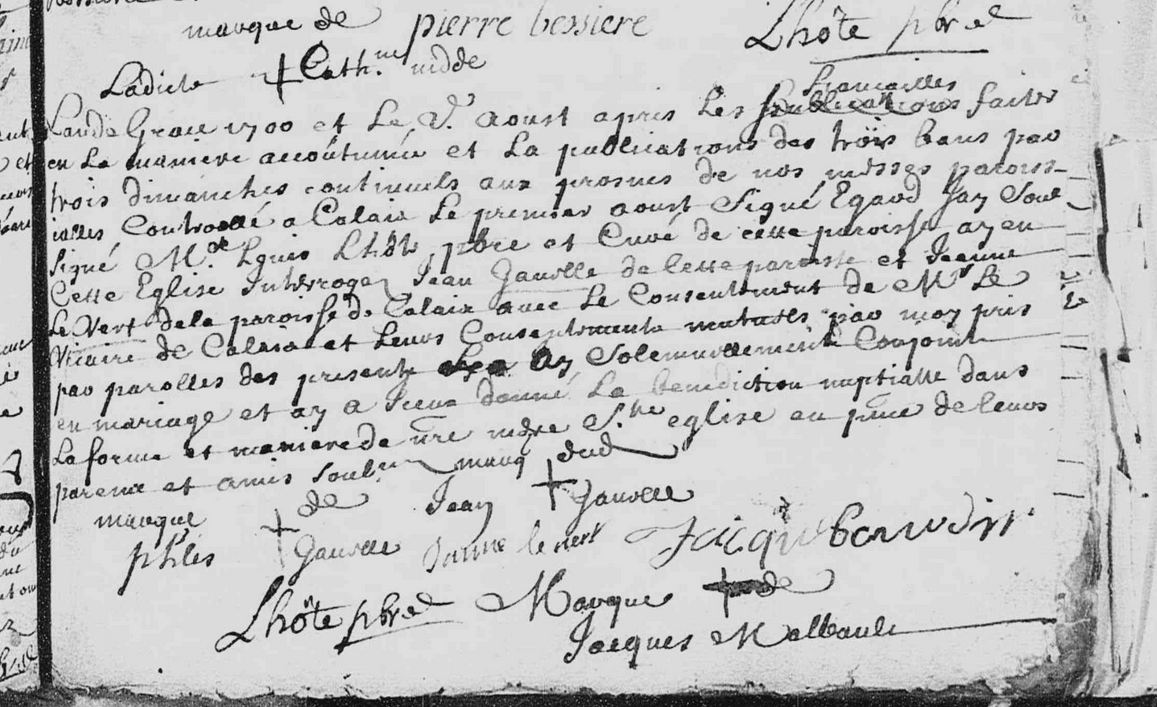 marque de pierre bessiere Lhôte pbre
Ladicte Cath.ne
francailles
Landé Grace 1700 et Le V. Aoust apres Les publications faites
en La maniere accoutumée et La publications des trois bans par
trois dimanches continuels aux prosnes de nos messes paroiss-
ialles Controllé a Calais Le premier aoust Signé Egard Jay Soub
signé M.re Louis Lhôte pbre et Curé de cette paroisse ay en
Cette Eglise Interrogez Jean Gavelle de Cette paroisse et Jeanne
Le Vert de la paroisse de Calais avec Le Consentement de Mr Le
Vicaire de Calais et Leurs Consentements mutuels par moy pris
par parolles des presents Les Ay Solemnellement Conjoint
en mariage et ay a Iceux donné La benediction nuptialle dans
La forme et maniere de nre mere Ste eglise en pnce de leurs
parens et amis soub.ne marq dud
marque de Jean Gavelle
phles Gavelle Janne le vert Jacque
Lhôte pbre Marque de
Jacques Malbault